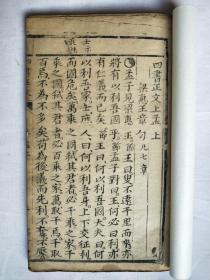 四書正文上孟 上
梁惠王章句上凡七章
孟子見梁惠王王曰叟不遠千里而來亦
將有以利吾國乎孟子對曰王何必曰利亦
有仁義而已矣王曰何以利吾國大夫曰何
以利吾家士庶人曰何以利吾身上下交征利
而國危矣萬乘之國弒其君者必千乘之家千
乘之國弒其君者必百乘之家萬取千焉千取
百焉不為不多矣苟為後義而先利不奪不饜